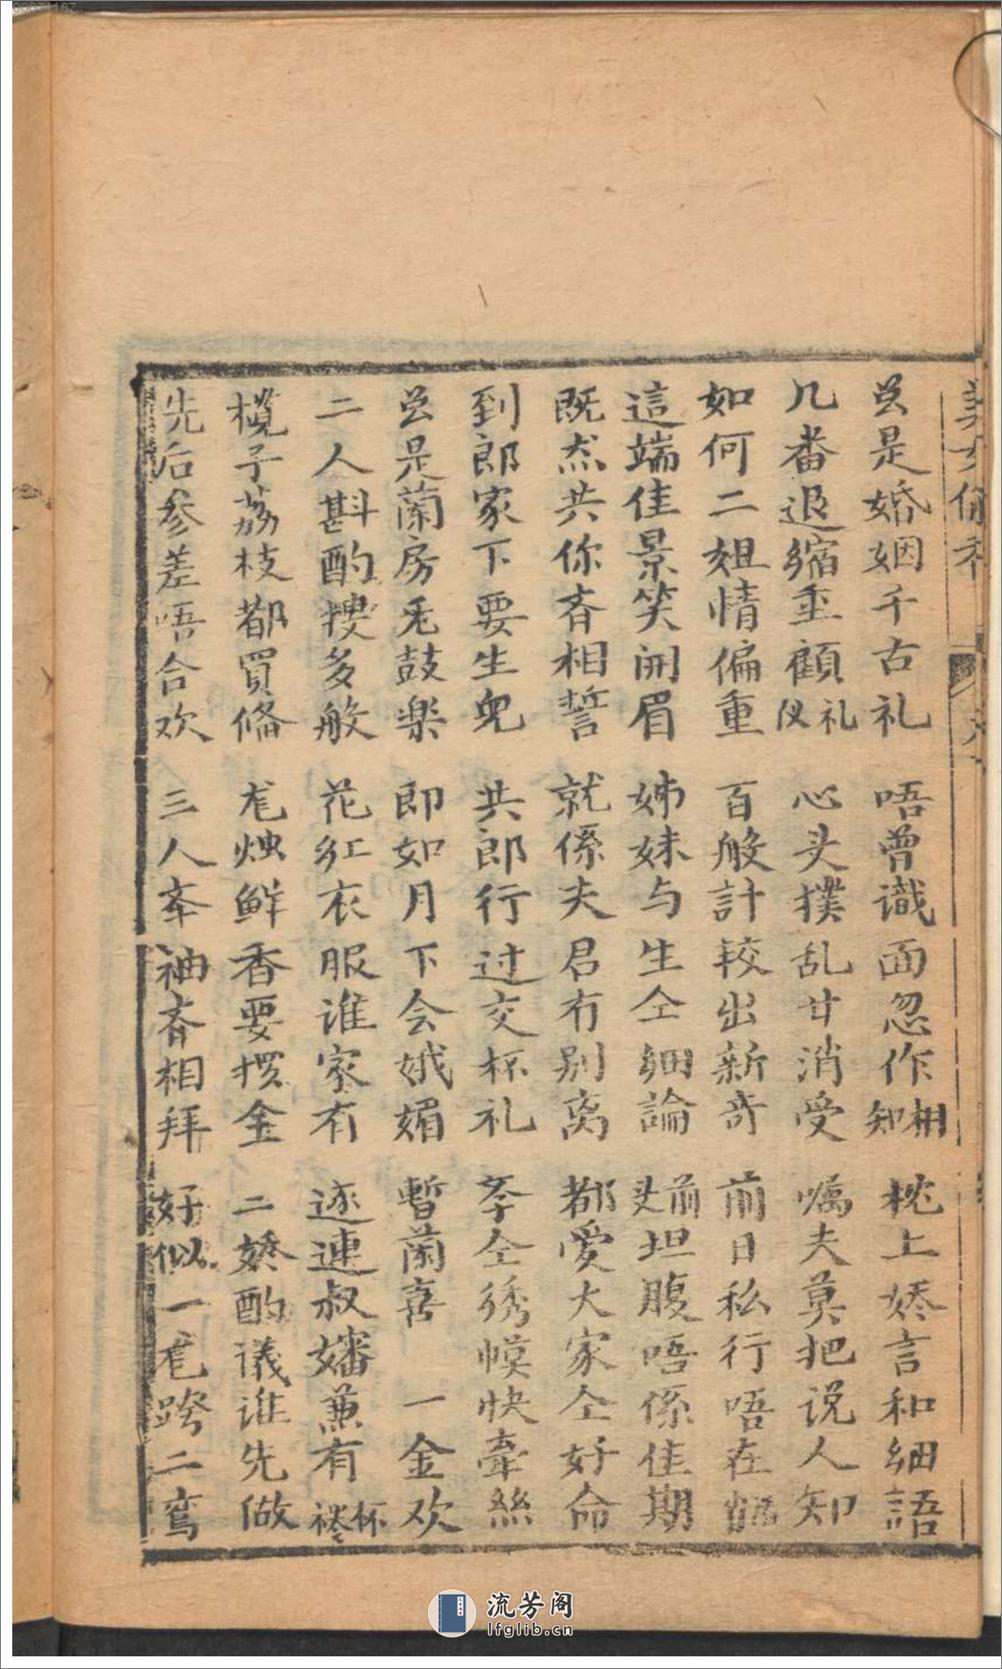 总是婚姻千古礼 唔曾識面忽作相知 枕上娇言和细語
几番退缩重顧礼仪 心头撲乱甘消受 嘱夫莫把说人知
如何二姐情偏重 百般計較出新奇 前日私行唔在
這端佳景笑開眉 姊妹与生仝细論 前头坦腹唔係佳期
既然共你齐相誓 就係夫君冇别离 都爱大家仝好命
到郎家下要生兒 共郎行过交杯礼 仝绣幙快牽絲
总是蘭房无鼓樂 即如月下会娥媚 暫蘭喜 一金欢
二人斟酌搜多般 花红衣服谁家有 逐連叔嬸兼有杯
榄子荔枝都買俻 龙烛鲜香要金 二娇酌議谁先做
先后参差唔合欢 三人牵袖齐相拜 好似一龙跨二鸾
流芳阁
lfglib.cn